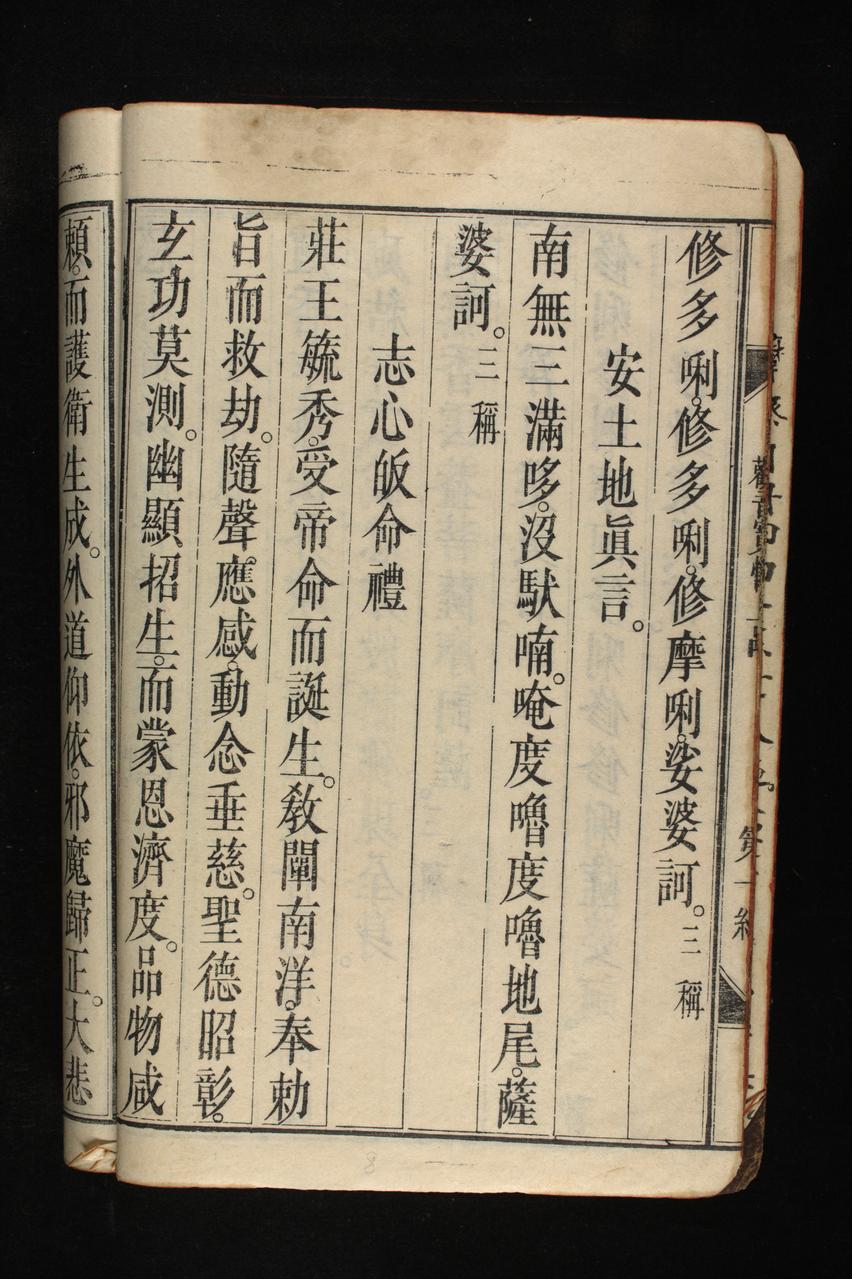 修多唎。修多唎。修摩唎。娑婆訶。三稱
安土地眞言。
南無三滿哆。沒馱喃。唵度嚕度嚕地尾。薩
婆訶。三稱
志心皈命禮
莊王毓秀。受帝命而誕生。敎闡南洋。奉勅
旨而救劫。隨聲應感。動念垂慈。聖德昭彰。
玄功莫測。幽顯招生。而蒙恩濟度。品物咸
賴。而護衛生成。外道仰依。邪魔歸正。大悲